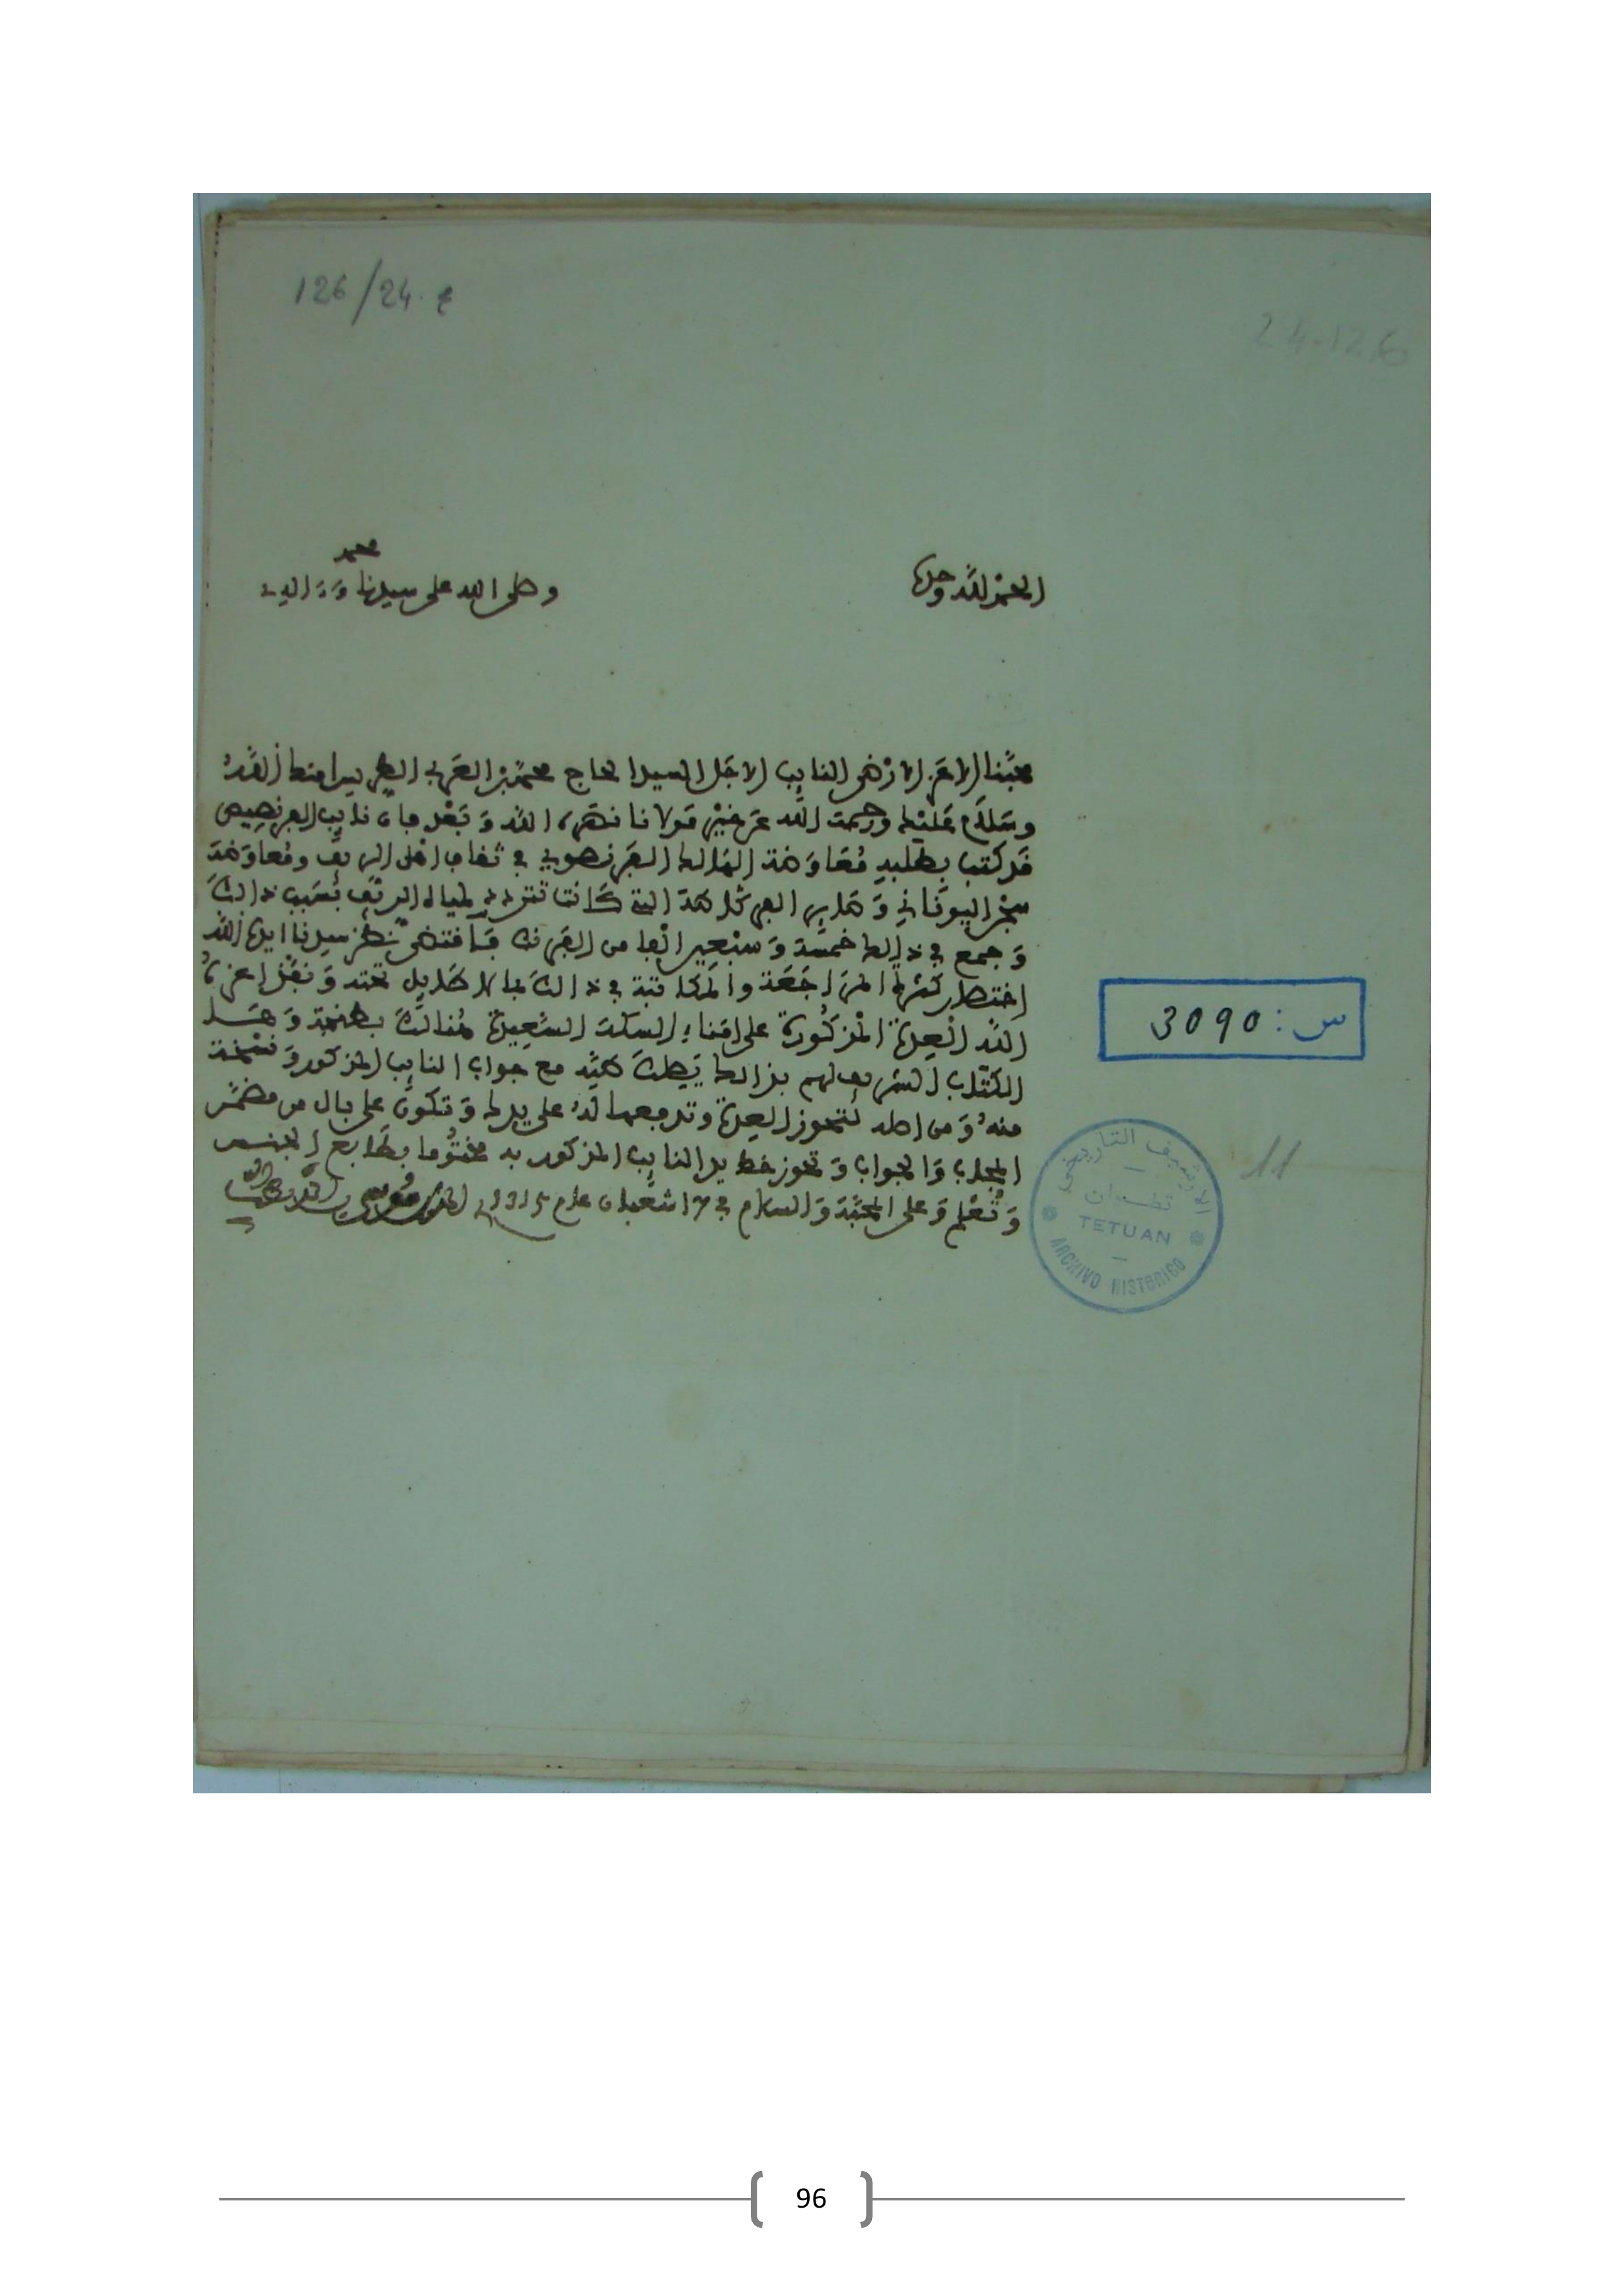 126/24.ع
24-126
الحمد لله وحده
وصلى الله على سيدنا محمد وءاله
محبنا الاعز الارضى النايب الاجل السيد الحاج محمد بن العربي الطريس امنك الله
وسلام عليك ورحمت الله عن خير مولانا نصره الله وبعد فان نايب الفرنصيص
قد كتب بطلب معاوضة الفرنصوي في ثقاف اهل الريف ومعاوضة
اليوناني التي كانت تتردد لمياه الريف بسبب ذالك
وجمع في ذالك خمسة وسبعين الفا من الفرنك فاقتضى نظر سيدنا ايده الله
اختصار كثرة المراجعة والمكاتبة في ذالك بما لا طايل تحته ونفذ اعزه
الله العدة المذكورة على امناء السكة السعيدة هنالك بطنجة
الكتاب الشريف لهم بذالك يصلك مع جواب النايب المذكور ونسخة
منه ومن اصله لتحوز العدة وتدفعها له على يدك وتكون على بال من مضمن
المجلوب والجواب وتحوز خط يد النايب المذكور به مختوما بطابع الجنس
وتعلم وعلى المحبة والسلام في شعبان عام بن
س: 3090
الارشيف التاريخي
تطوان
TETUAN
ARCHIVO HISTORICO
11
96